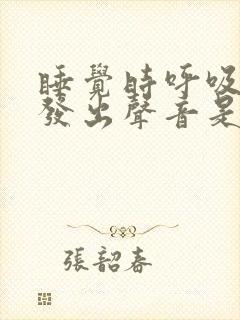 睡覺時呼吸
發出聲音是
張韶春